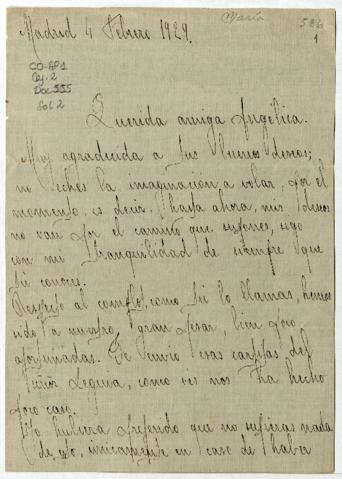 Madrid 4 Febrero 1929.
María
586
1
CO-AP1
Cj. 2
Doc 555
Fol 2
Querida amiga Angélica.
Muy agradecida a tus buenos deseos;
no eches la imaginación a volar, por el
momento, es decir, hasta ahora, mis deseos
no van por el camino que supones, sigo
con mi tranquilidad de siempre que
tú conoces.
Respecto al complot, como tú lo llamas, hemos
sido a nuestro gran pesar, bien poco
afortunadas. Te envío esas cartitas del
Señor Leguia, como ves nos ha hecho
poco caso.
Yo hubiera preferido que no supieras nada
de esto, únicamente en caso de haber